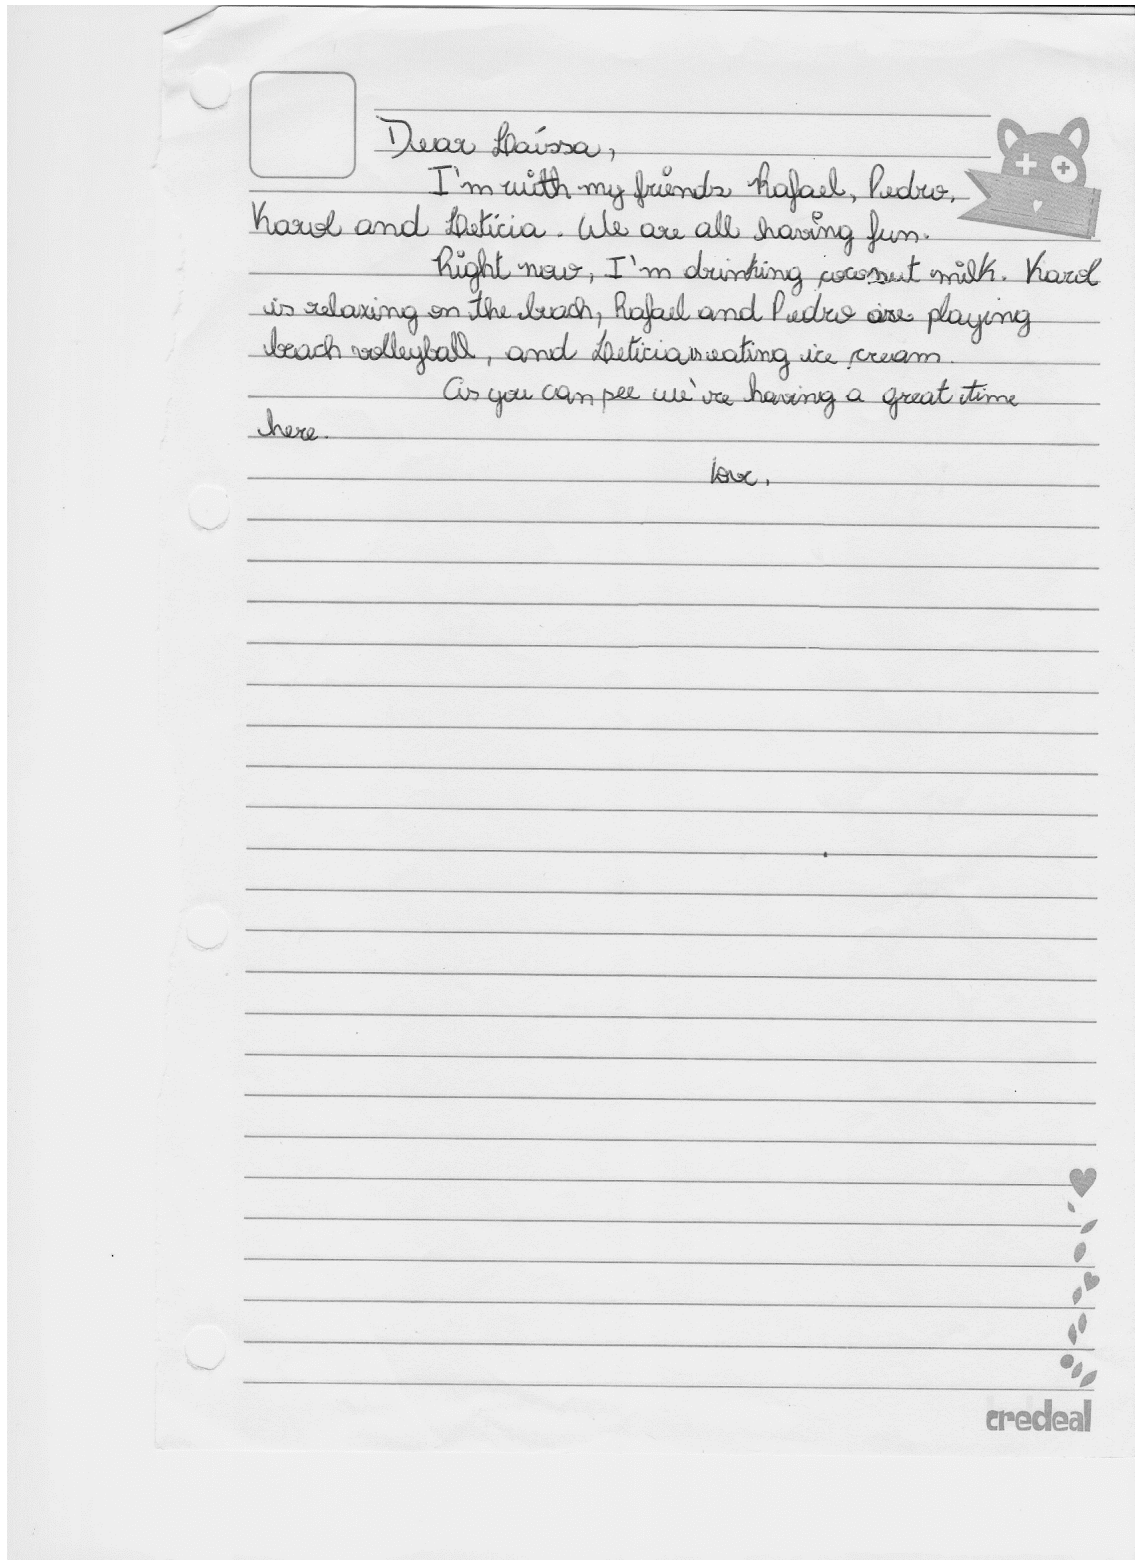 Dear Laíssa,
I'm with my friends Rafael, Pedro,
Karol and Letícia. We are all having fun.
Right now, I'm drinking coconut milk. Karol
is relaxing on the beach, Rafael and Pedro are playing
beach volleyball, and Letícia is eating ice cream.
As you can see we're having a great time
here.
Love,
credeal